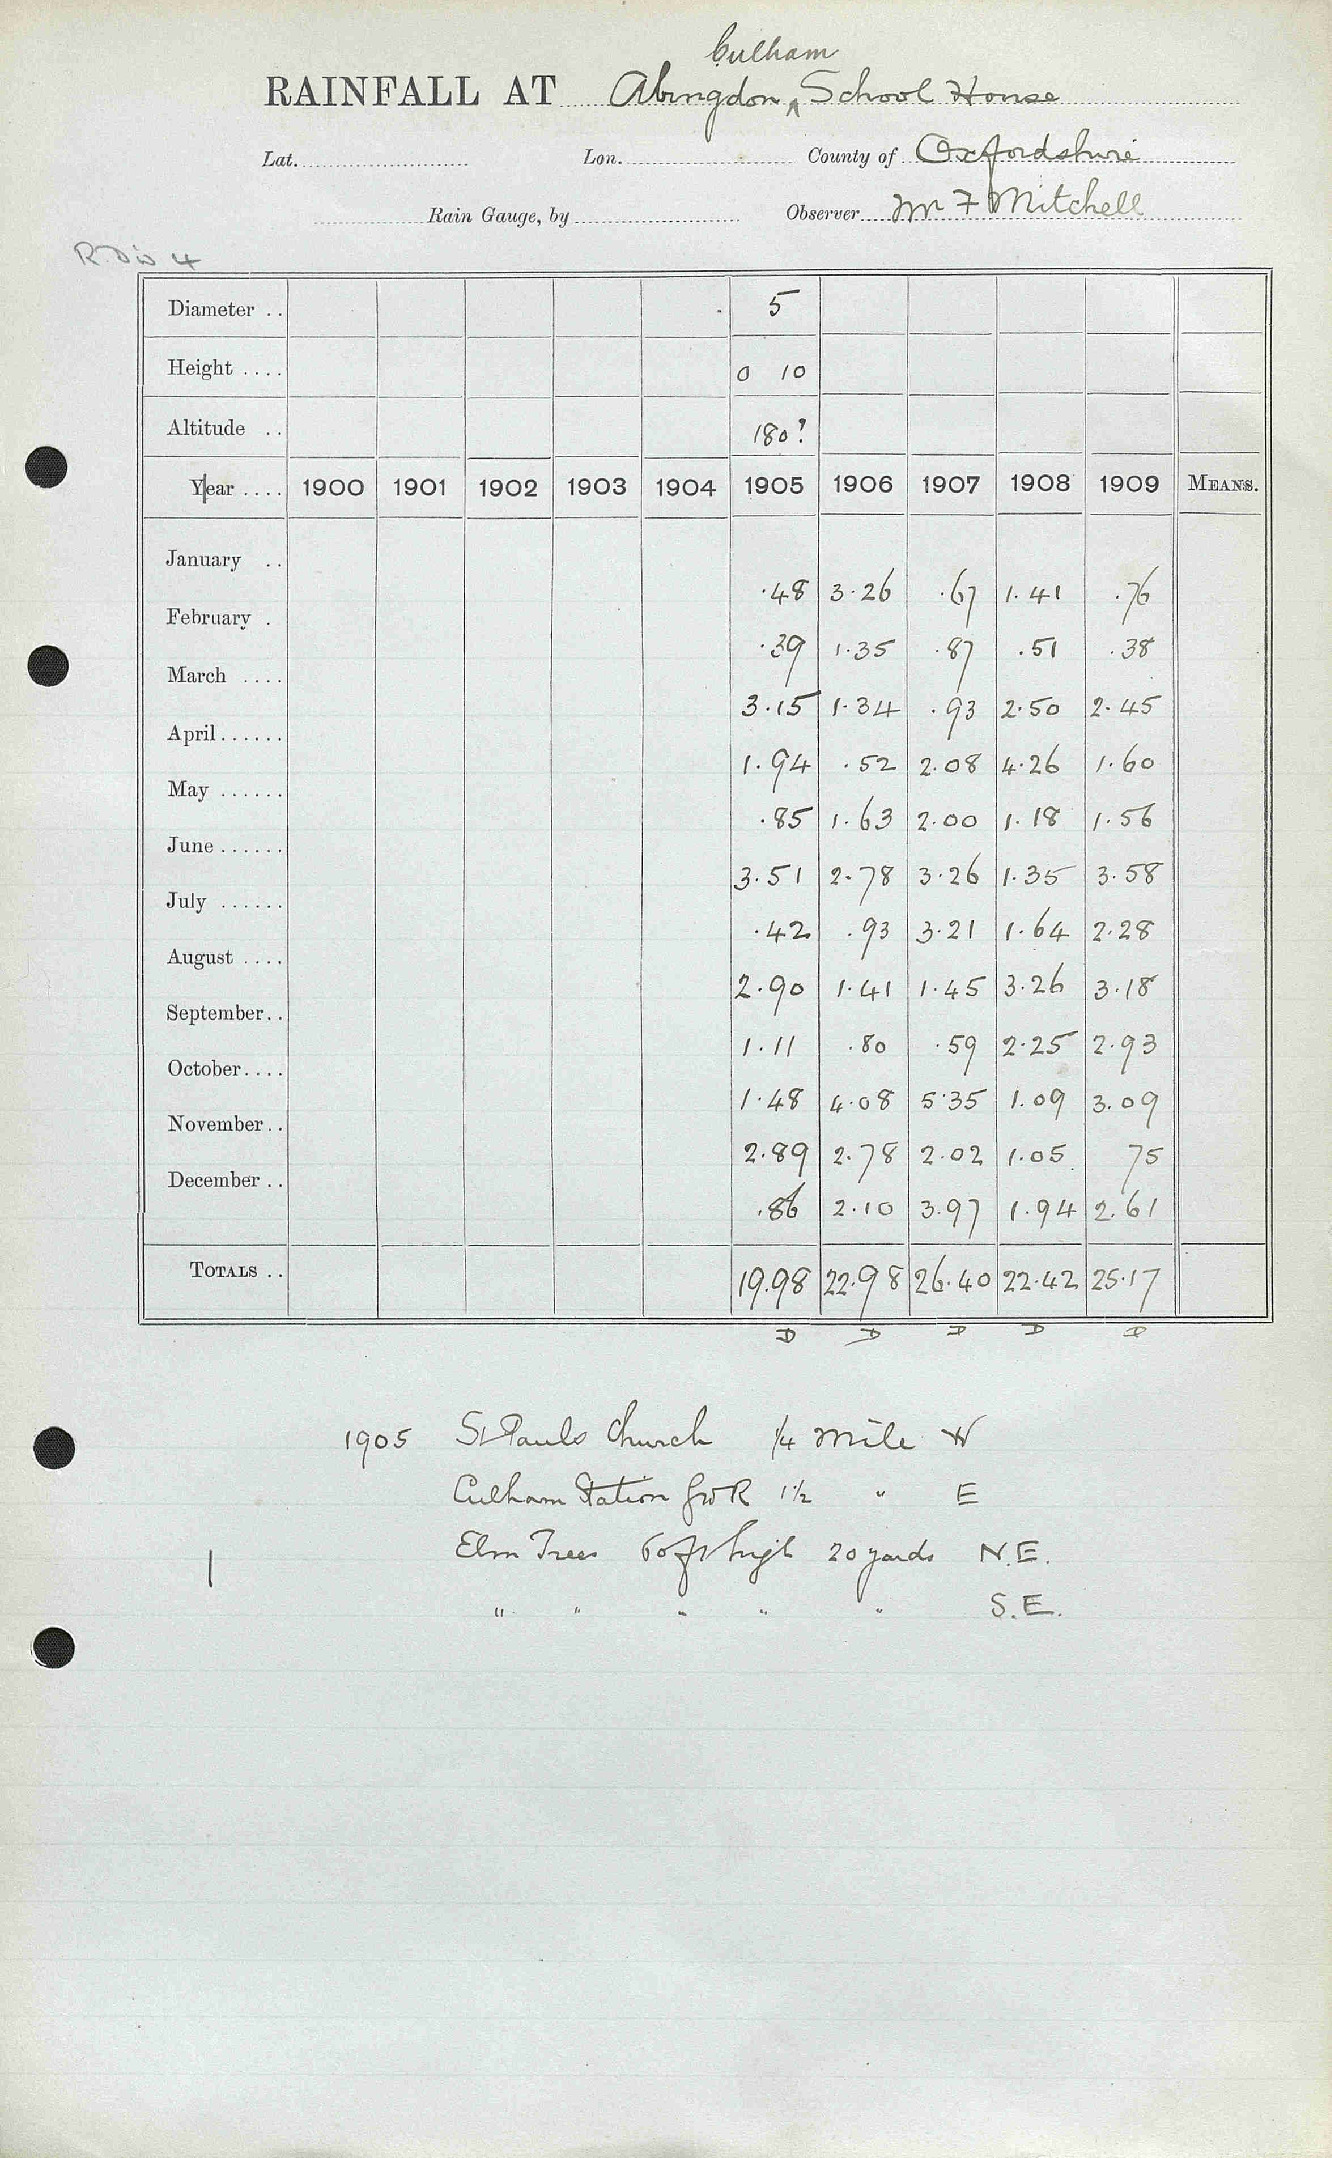 Culham
RAINFALL AT Abingdon ^ School House
Lat. Lon. County of Oxfordshire
Rain Gauge, by Observer Mr F Mitchell
R. Div 4
Diameter .. 5
Height .... 0 10
Altitude .. 180?
Year .... 1900 1901 1902 1903 1904 1905 1906 1907 1908 1909 MEANS.
January .. .48 3.26 .67 1.41 .76
February . .39 1.35 .87 .51 .38
March .... 3.15 1.34 .93 2.50 2.45
April...... 1.94 .52 2.08 4.26 1.60
May ...... .85 1.63 2.00 1.18 1.56
June ...... 3.51 2.78 3.26 1.35 3.58
July ...... .42 .93 3.21 1.64 2.28
August .... 2.90 1.41 1.45 3.26 3.18
September.. 1.11 .80 .59 2.25 2.93
October.... 1.48 4.08 5.35 1.09 3.09
November.. 2.89 2.78 2.02 1.05 75
December .. .86 2.10 3.97 1.94 2.61
TOTALS .. 19.98 22.98 26.40 22.42 25.17
D D D D D
1905 St Pauls Church 1/4 mile W
Culham Station GWR 1 1/2 " E
Elm Trees 60 ft high 20 yards N.E.
" " " " " S.E.